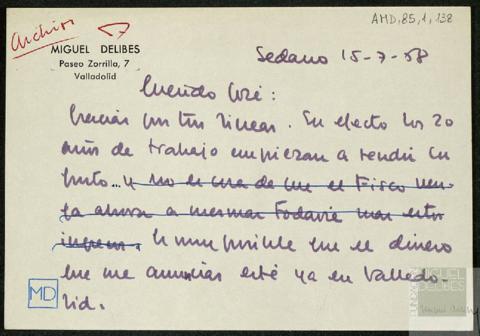 Archivo
AMD, 85, 1, 138
MIGUEL DELIBES
Paseo Zorrilla, 7
Valladolid
Sedano 15-7-58
Querido José:
Gracias por tus líneas. En efecto los 20
años de trabajo empiezan a rendir su
fruto... y no es cosa de que el Fisco ven-
ga ahora a mermar todavía más estos
ingresos. Es muy posible que el dinero
que me anuncias esté ya en Vallado-
lid.
MD
FUNDACIÓN
MIGUEL
DELIBES